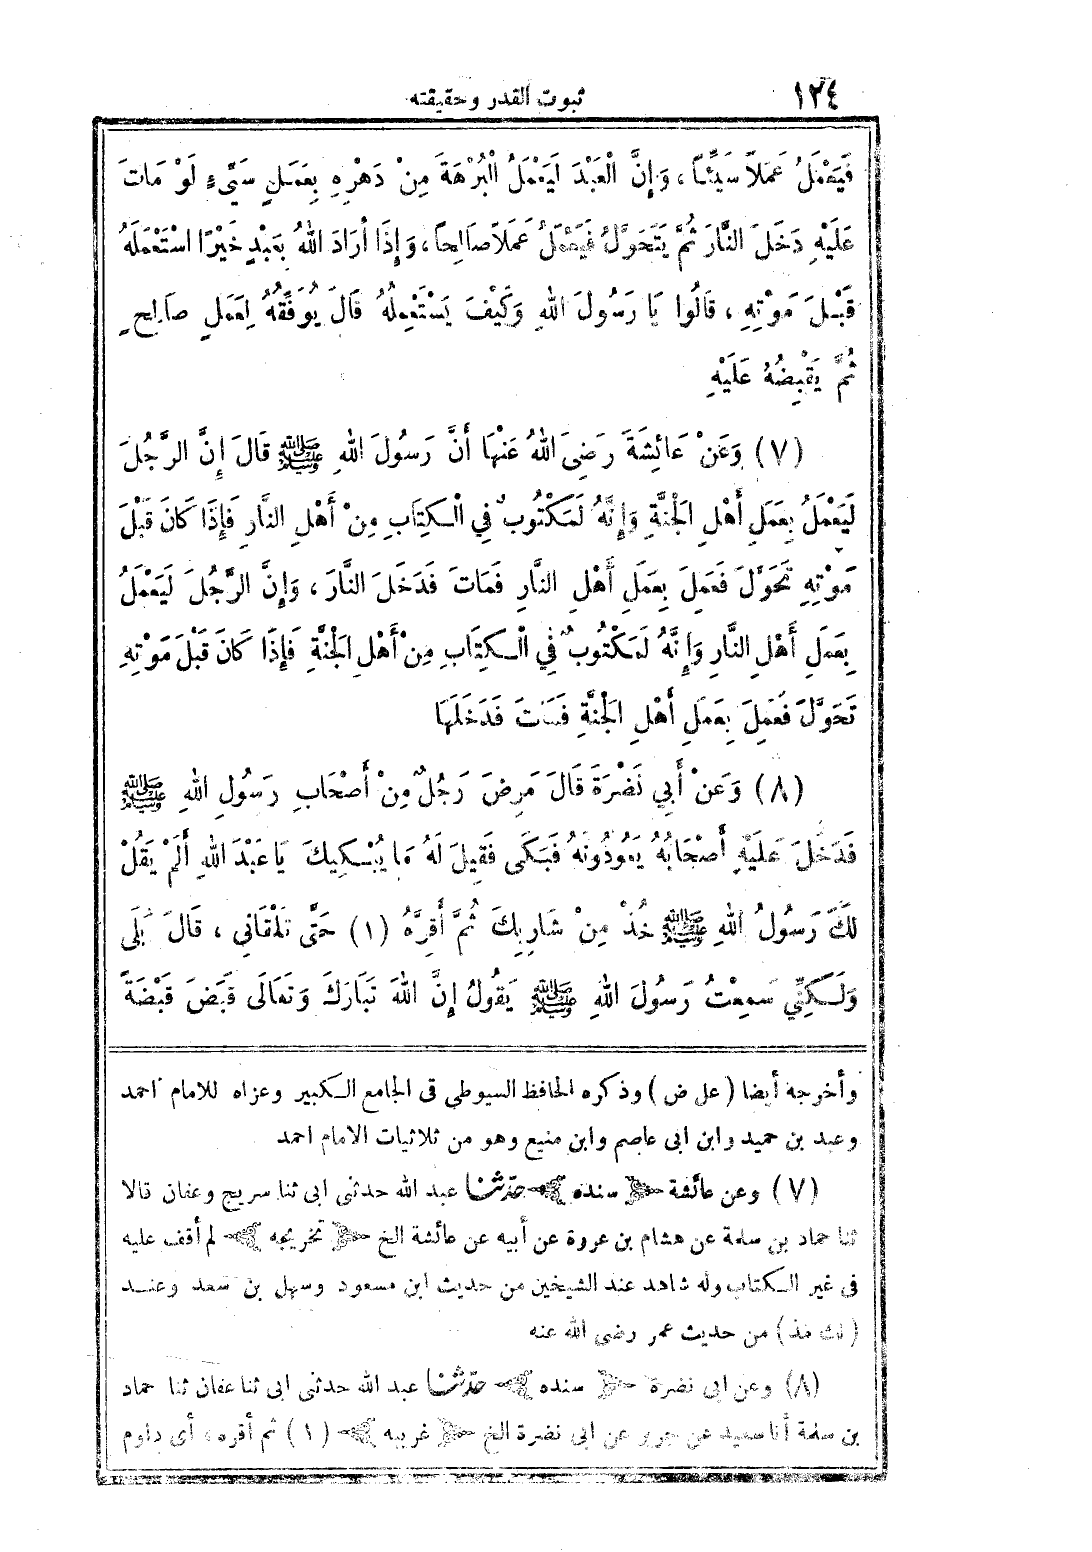 ١٢٤ ثبوت القدر وحقيقته
فَيَعْمَلُ عَمَلاً سَيِّئًا ، وَإِنَّ الْعَبْدَ لَيَعْمَلُ الْبُرْهَةَ مِنْ دَهْرِهِ بِعَمَلٍ سَيِّءٍ لَوْ مَاتَ
عَلَيْهِ دَخَلَ النَّارَ ثُمَّ يَتَحَوَّلُ فَيَعْمَلُ عَمَلاً صَالِحًا ، وَإِذَا أَرَادَ اللهُ بِعَبْدٍ خَيْرًا اسْتَعْمَلَهُ
قَبْلَ مَوْتِهِ ، قَالُوا يَا رَسُولَ اللهِ وَكَيْفَ يَسْتَعْمِلُهُ قَالَ يُوَفِّقُهُ لِعَمَلٍ صَالِحٍ
ثُمَّ يَقْبِضُهُ عَلَيْهِ
(٧) وَعَنْ عَائِشَةَ رَضِيَ اللهُ عَنْهَا أَنَّ رَسُولَ اللهِ ﷺ قَالَ إِنَّ الرَّجُلَ
لَيَعْمَلُ بِعَمَلِ أَهْلِ الْجَنَّةِ وَإِنَّهُ لَمَكْتُوبٌ فِي الْكِتَابِ مِنْ أَهْلِ النَّارِ فَإِذَا كَانَ قَبْلَ
مَوْتِهِ تَحَوَّلَ فَعَمِلَ بِعَمَلِ أَهْلِ النَّارِ فَمَاتَ فَدَخَلَ النَّارَ ، وَإِنَّ الرَّجُلَ لَيَعْمَلُ
بِعَمَلِ أَهْلِ النَّارِ وَإِنَّهُ لَمَكْتُوبٌ فِي الْكِتَابِ مِنْ أَهْلِ الْجَنَّةِ فَإِذَا كَانَ قَبْلَ مَوْتِهِ
تَحَوَّلَ فَعَمِلَ بِعَمَلِ أَهْلِ الْجَنَّةِ فَمَاتَ فَدَخَلَهَا
(٨) وَعَنْ أَبِي نَضْرَةَ قَالَ مَرِضَ رَجُلٌ مِنْ أَصْحَابِ رَسُولِ اللهِ ﷺ
فَدَخَلَ عَلَيْهِ أَصْحَابُهُ يَعُودُونَهُ فَبَكَى فَقِيلَ لَهُ مَا يُبْكِيكَ يَا عَبْدَ اللهِ أَلَمْ يَقُلْ
لَكَ رَسُولُ اللهِ ﷺ خُذْ مِنْ شَارِبِكَ ثُمَّ أَقِرَّهُ (١) حَتَّى تَلْقَانِي ، قَالَ بَلَى
وَلَكِنِّي سَمِعْتُ رَسُولَ اللهِ ﷺ يَقُولُ إِنَّ اللهَ تَبَارَكَ وَتَعَالَى قَبَضَ قَبْضَةً
وأخرجه أيضا (عل ض) وذكره الحافظ السيوطي فى الجامع الكبير وعزاه للامام احمد
وعبد بن حميد وابن ابى عاصم وابن منيع وهو من ثلاثيات الامام احمد
(٧) وعن عائشة سنده حدثنا عبد الله حدثنى ابى ثنا سريج وعفان قالا
ثنا حماد بن سلمة عن هشام بن عروة عن أبيه عن عائشة الخ تخريجه لم أقف عليه
فى غير الكتاب وله شاهد عند الشيخين من حديث ابن مسعود وسهل بن سعد وعند
(لك مذ) من حديث عمر رضى الله عنه
(٨) وعن ابى نضرة سنده حدثنا عبد الله حدثنى ابى ثنا عفان ثنا حماد
بن سلمة أنا سعيد عن جرير عن ابى نضرة الخ غريبه (١) ثم أقره، أى داوم